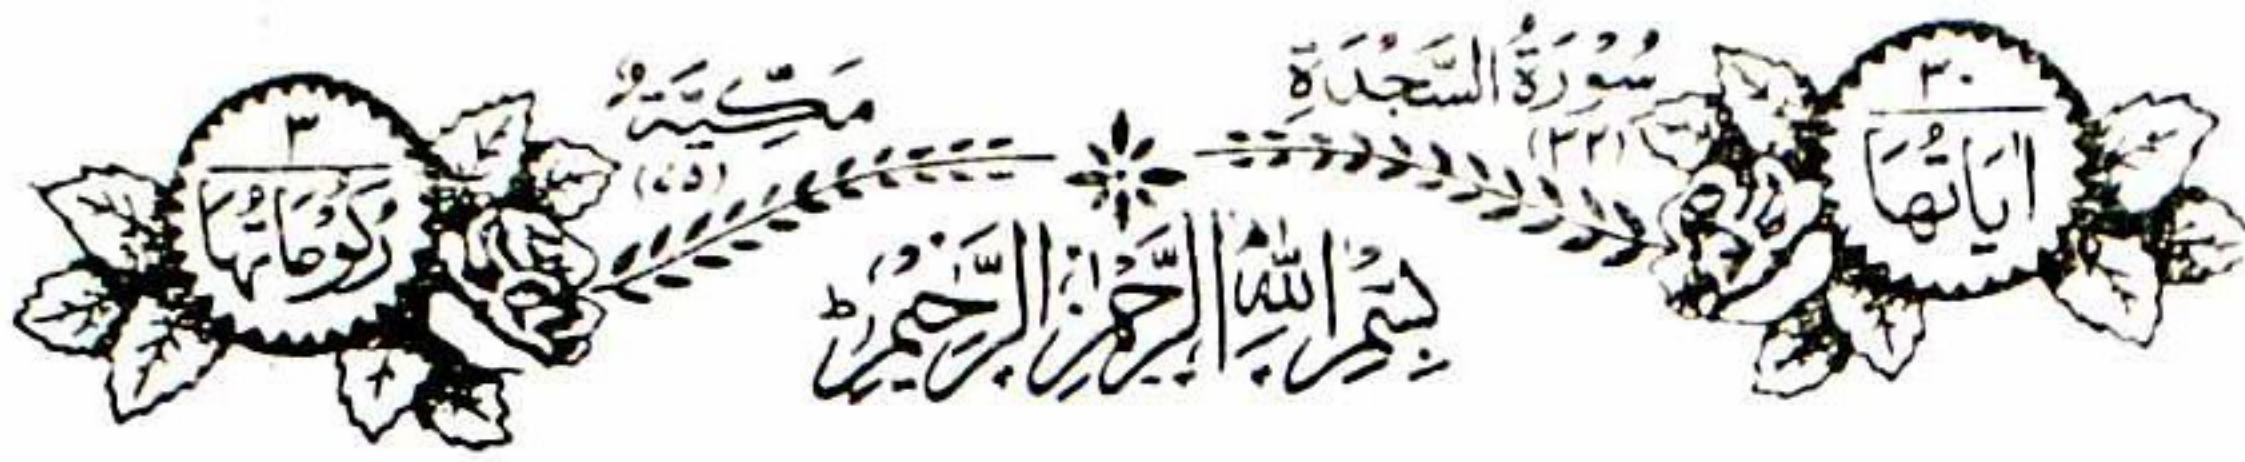 ٣٠
اٰيَاتُهَا
سُوْرَةُ السَّجْدَةِ
(٣٢)
مَكِّيَّةٌ
(٧٥)
٣
رُكُوْعَاتُهَا
بِسْمِ اللّٰهِ الرَّحْمٰنِ الرَّحِيْمِ ؕ